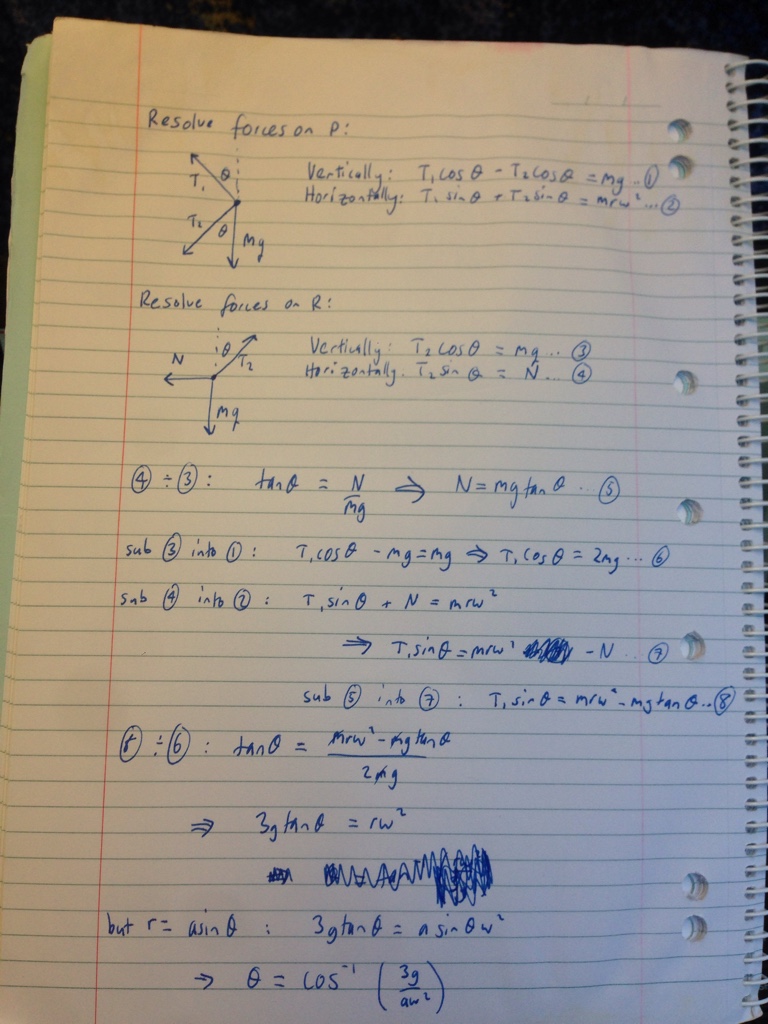 Resolve forces on P:
T₁ θ
T₂ θ Mg
Vertically: T₁cosθ - T₂cosθ = mg ..①
Horizontally: T₁ sinθ + T₂sinθ = mrw² ...②
Resolve forces on R:
N θ T₂
Mg
Vertically: T₂cosθ = mg ... ③
Horizontally. T₂sinθ = N ... ④
④ ÷ ③ : tanθ = N/mg ⇒ N = mgtanθ .. ⑤
sub ③ into ① : T₁cosθ - mg = mg ⇒ T₁cosθ = 2mg ... ⑥
sub ④ into ② : T₁sinθ + N = mrw²
⇒ T₁sinθ = mrw² - N .. ⑦
sub ⑤ into ⑦ : T₁sinθ = mrw² - mgtanθ ..⑧
⑧ ÷ ⑥ : tanθ = (mrw² - mgtanθ)/2mg
⇒ 3gtanθ = rw²
but r = asinθ : 3gtanθ = asinθw²
⇒ θ = cos⁻¹ (3g/aw²)